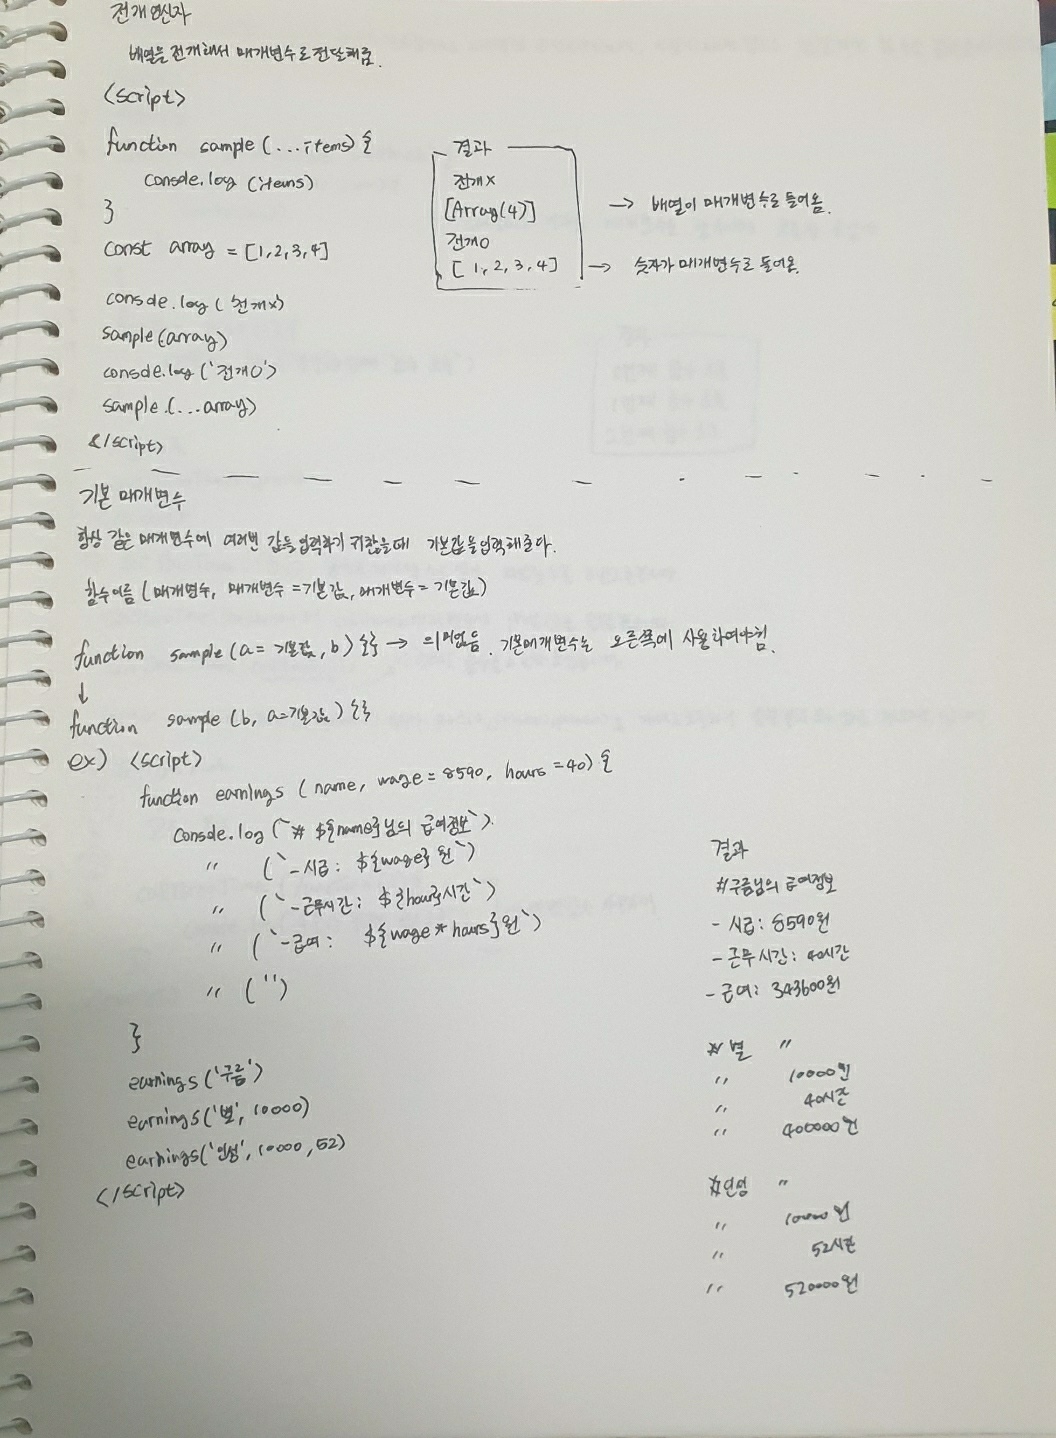 전개 연산자
배열을 전개해서 매개변수로 전달해줌.
<script>
function sample (...items) {
console.log (items)
}
const array = [1,2,3,4]
console.log ('전개x')
sample(array)
console.log ('전개O')
sample (...array)
</script>
결과
전개x
[Array(4)] → 배열이 매개변수로 들어옴.
전개O
[ 1, 2, 3, 4] → 숫자가 매개변수로 들어옴.
기본 매개변수
항상 같은 매개변수에 여러번 값을 입력하기 귀찮을때 기본값을 입력해준다.
함수이름 (매개변수, 매개변수 =기본값, 매개변수= 기본값)
function sample (a= 기본값, b) {} → 의미없음. 기본매개변수는 오른쪽에 사용하여야힘.
↓
function sample (b, a=기본값) {}
ex) <script>
function earnings ( name, wage = 8590, hours =40) {
console.log (`# ${name}님의 급여정보`).
〃 (`-시급: ${wage} 원`)
〃 (`-근무시간: ${hour}시간`)
〃 (`-급여: ${wage * hours}원`)
〃 ('')
}
earnings('구름')
earnings('별', 10000)
earnings('인성', 10000, 52)
</script>
결과
#구름님의 급여정보
- 시급: 8590원
- 근무시간: 40시간
- 급여: 343600원
# 별 〃
〃 10000원
〃 40시간
〃 400000원
#인성 〃
〃 10000원
〃 52시간
〃 520000원